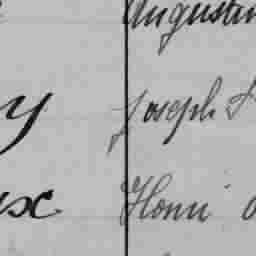 Augustin
y Joseph
ux Henri